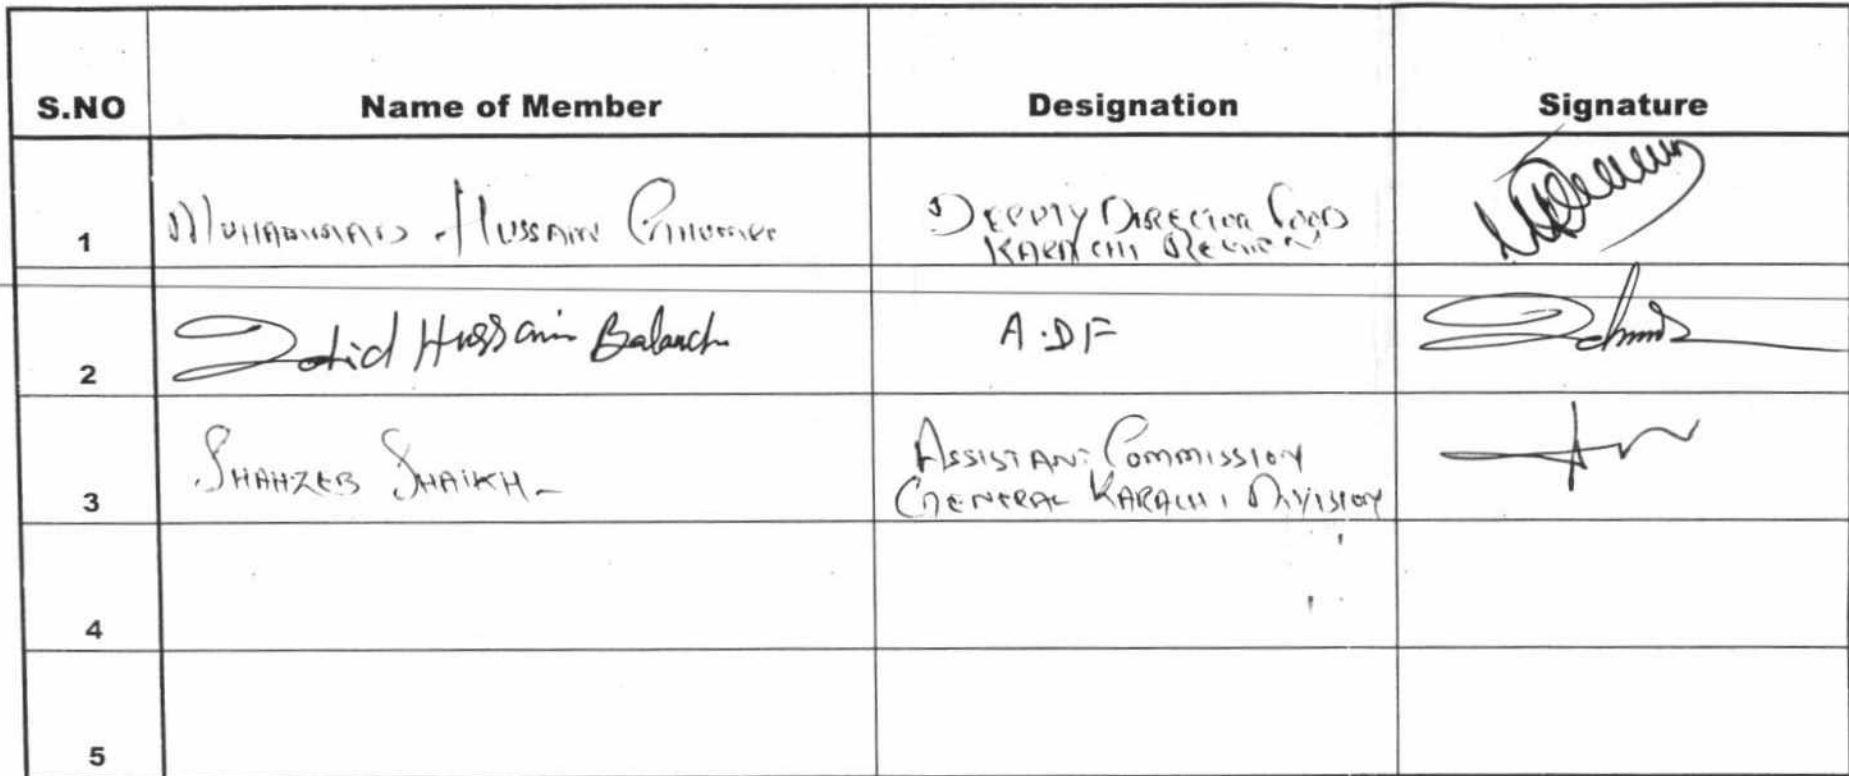 S.NO Name of Member Designation Signature
1 MUHAMMAD HUSSAIN DEPUTY DIRECTOR FOOD
KARACHI REGION
2 Zahid Hussain Baloch A.DF
3 SHAHZEB SHAIKH- ASSISTANT COMMISSION
GENERAL KARACHI DIVISION
4
5